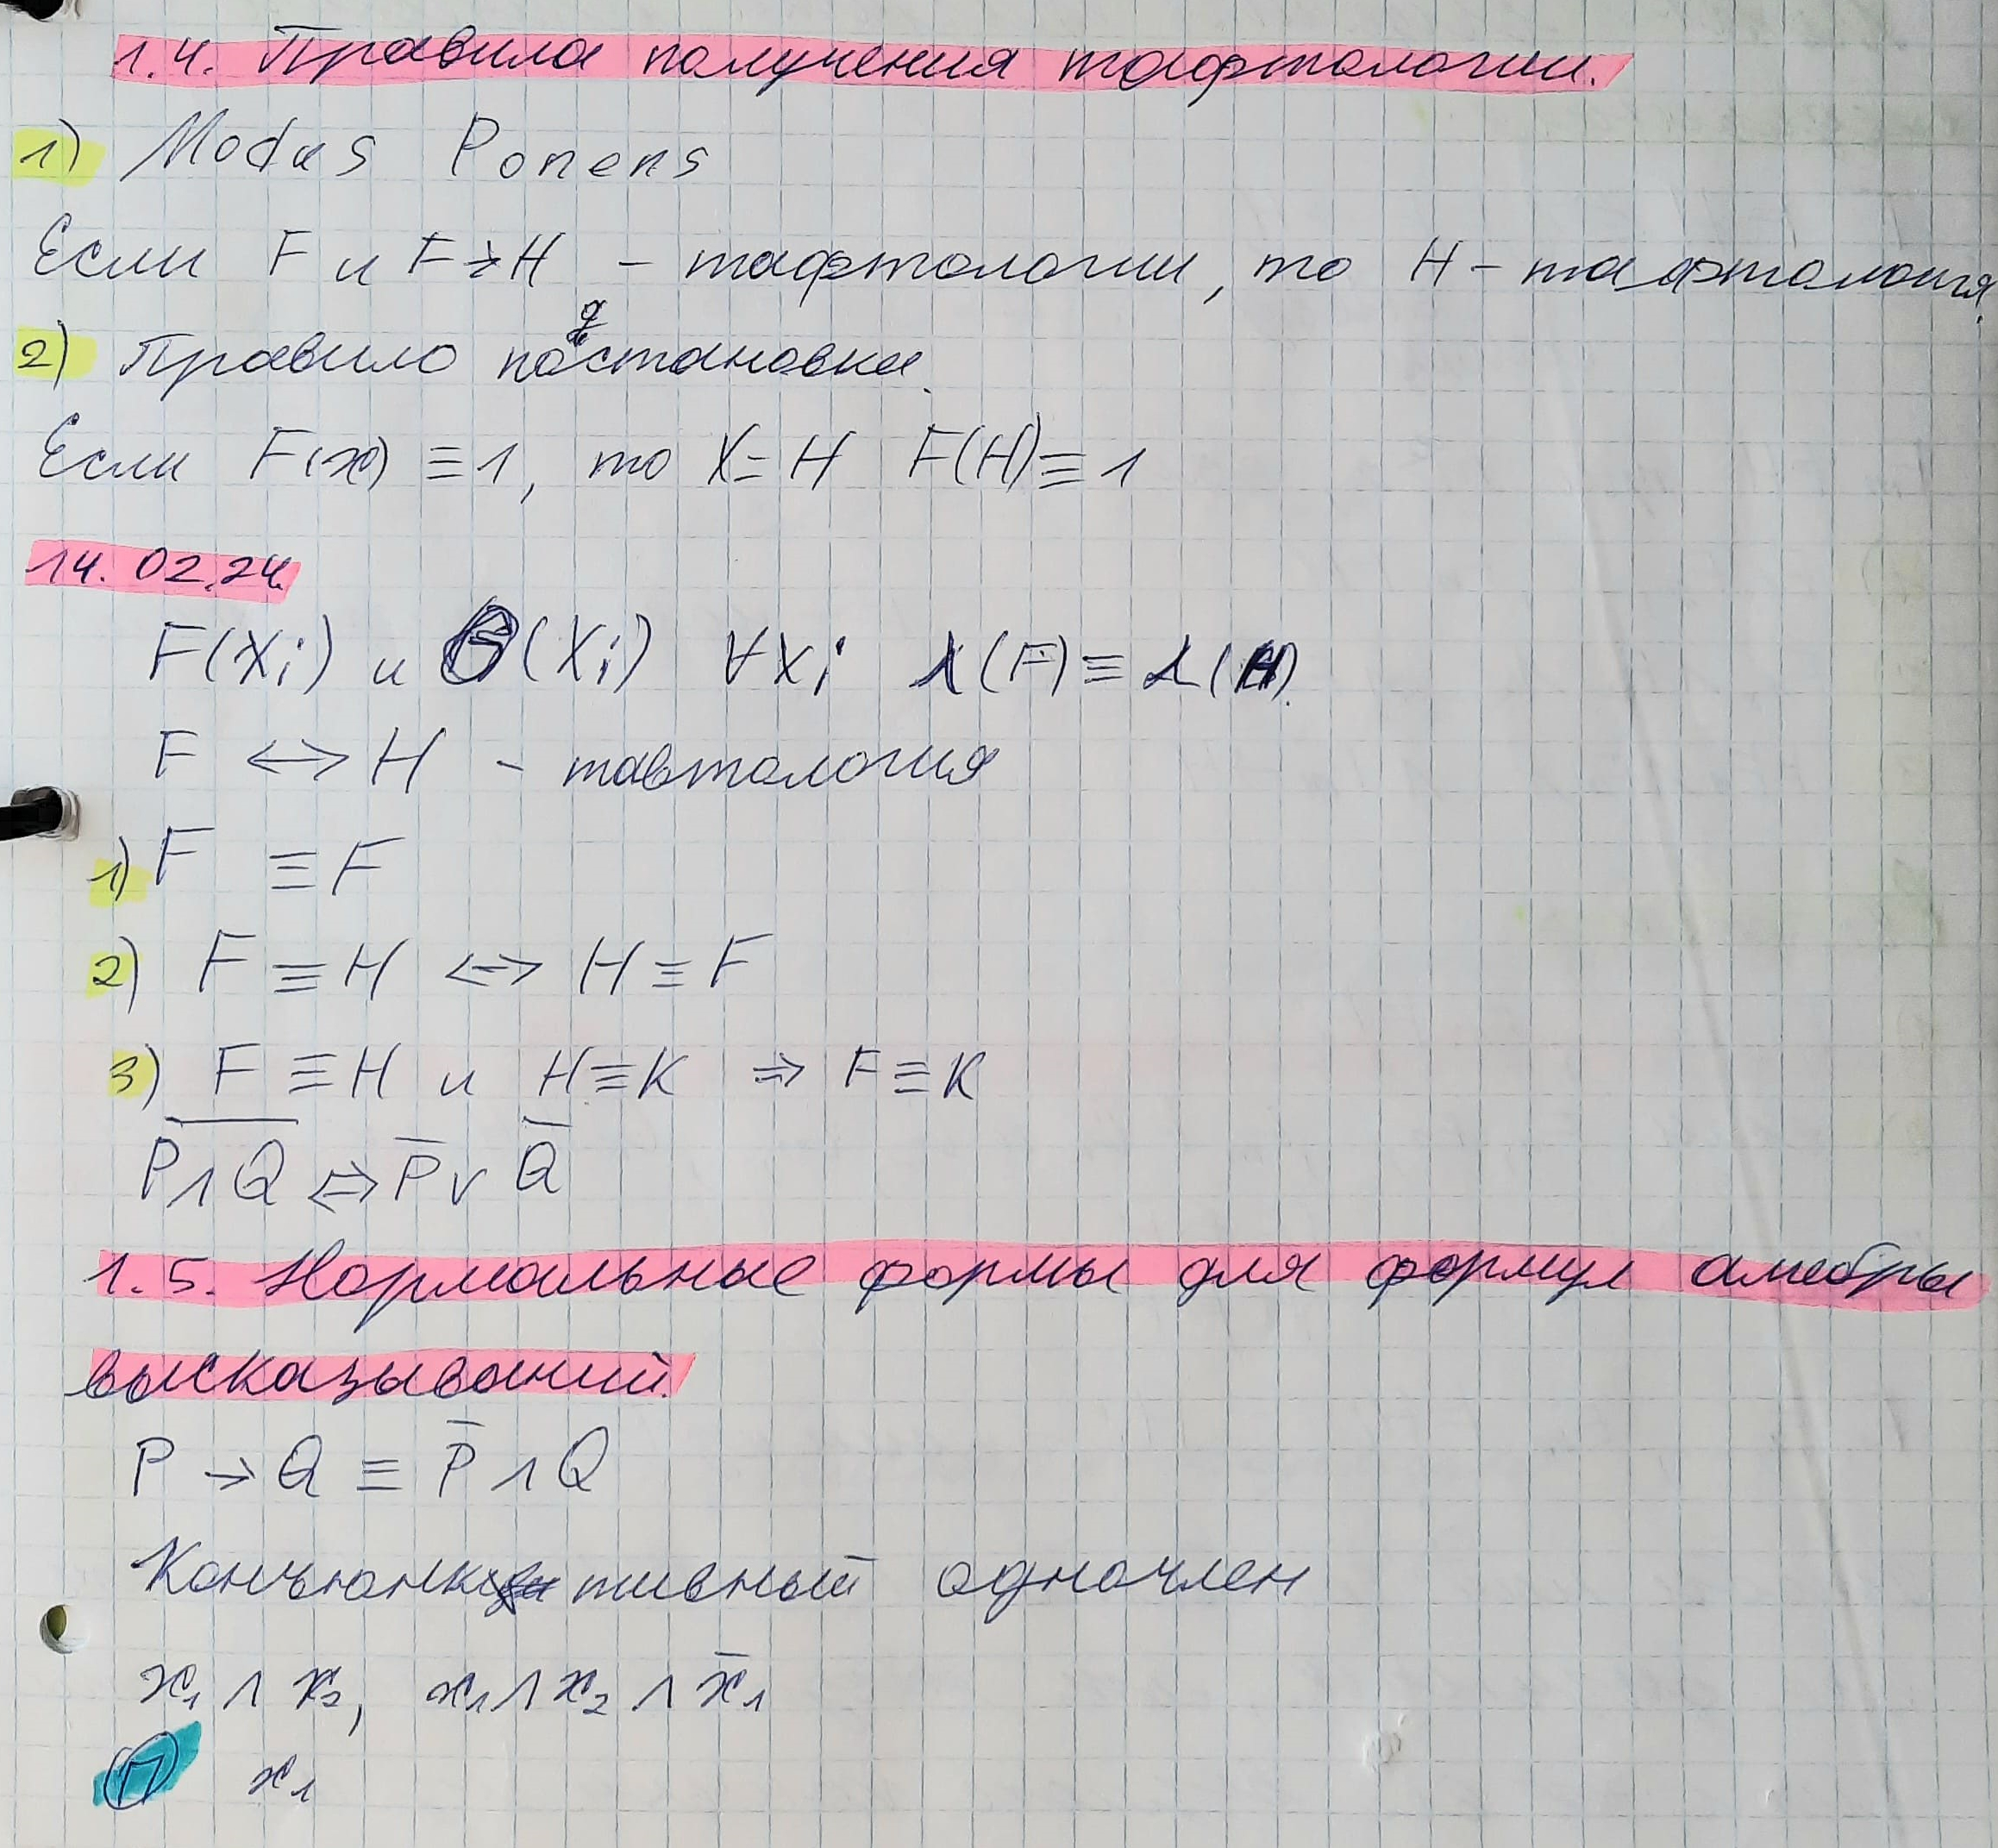 1.4. Правила получения тафтологии.
1) Modus Ponens
Если F и F→H – тафтологии, то H – тафтология.
2) Правило подстановки.
Если F(x) ≡ 1, то X = H F(H) ≡ 1
14.02.24.
F(Xi) и (Xi) ∀Xi λ(F) ≡ λ(H).
F ↔ H – тавтология
1) F ≡ F
2) F ≡ H ⇔ H ≡ F
3) F ≡ H и H ≡ K ⇒ F ≡ K
P̅ ̅∧̅ ̅Q̅ ⇔ P̅ ∨ Q̅
1.5. Нормальные формы для формул алгебры
высказываний.
P → Q ≡ P̅ ∧ Q
Конъюнктивный одночлен
x₁ ∧ x₂, x₁ ∧ x₂ ∧ x̅₁
П x₁